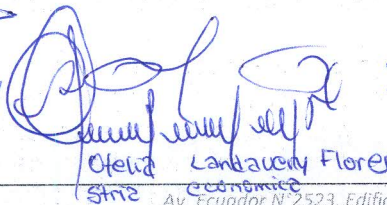 Otelia Landaveny Flores
Stria economica
Av. Ecuador N°2523, Edific